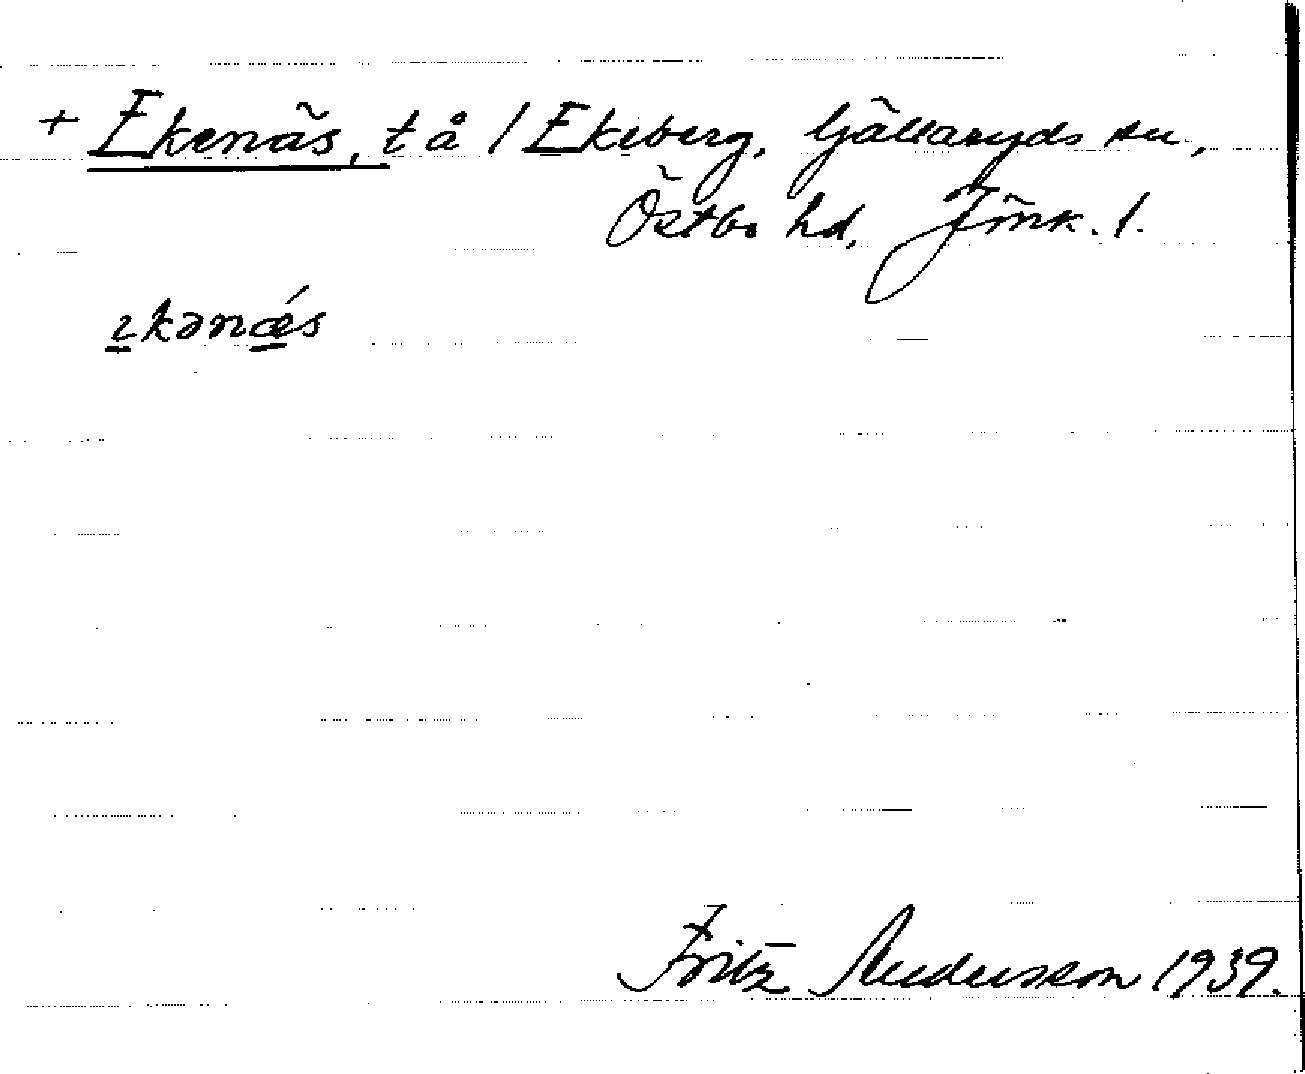 + Ekenäs, tå / Ekeberg, Gällaryds sn,
Östbo hd, Jönk. l.
ekənǽs
Fritz Andersson 1939.